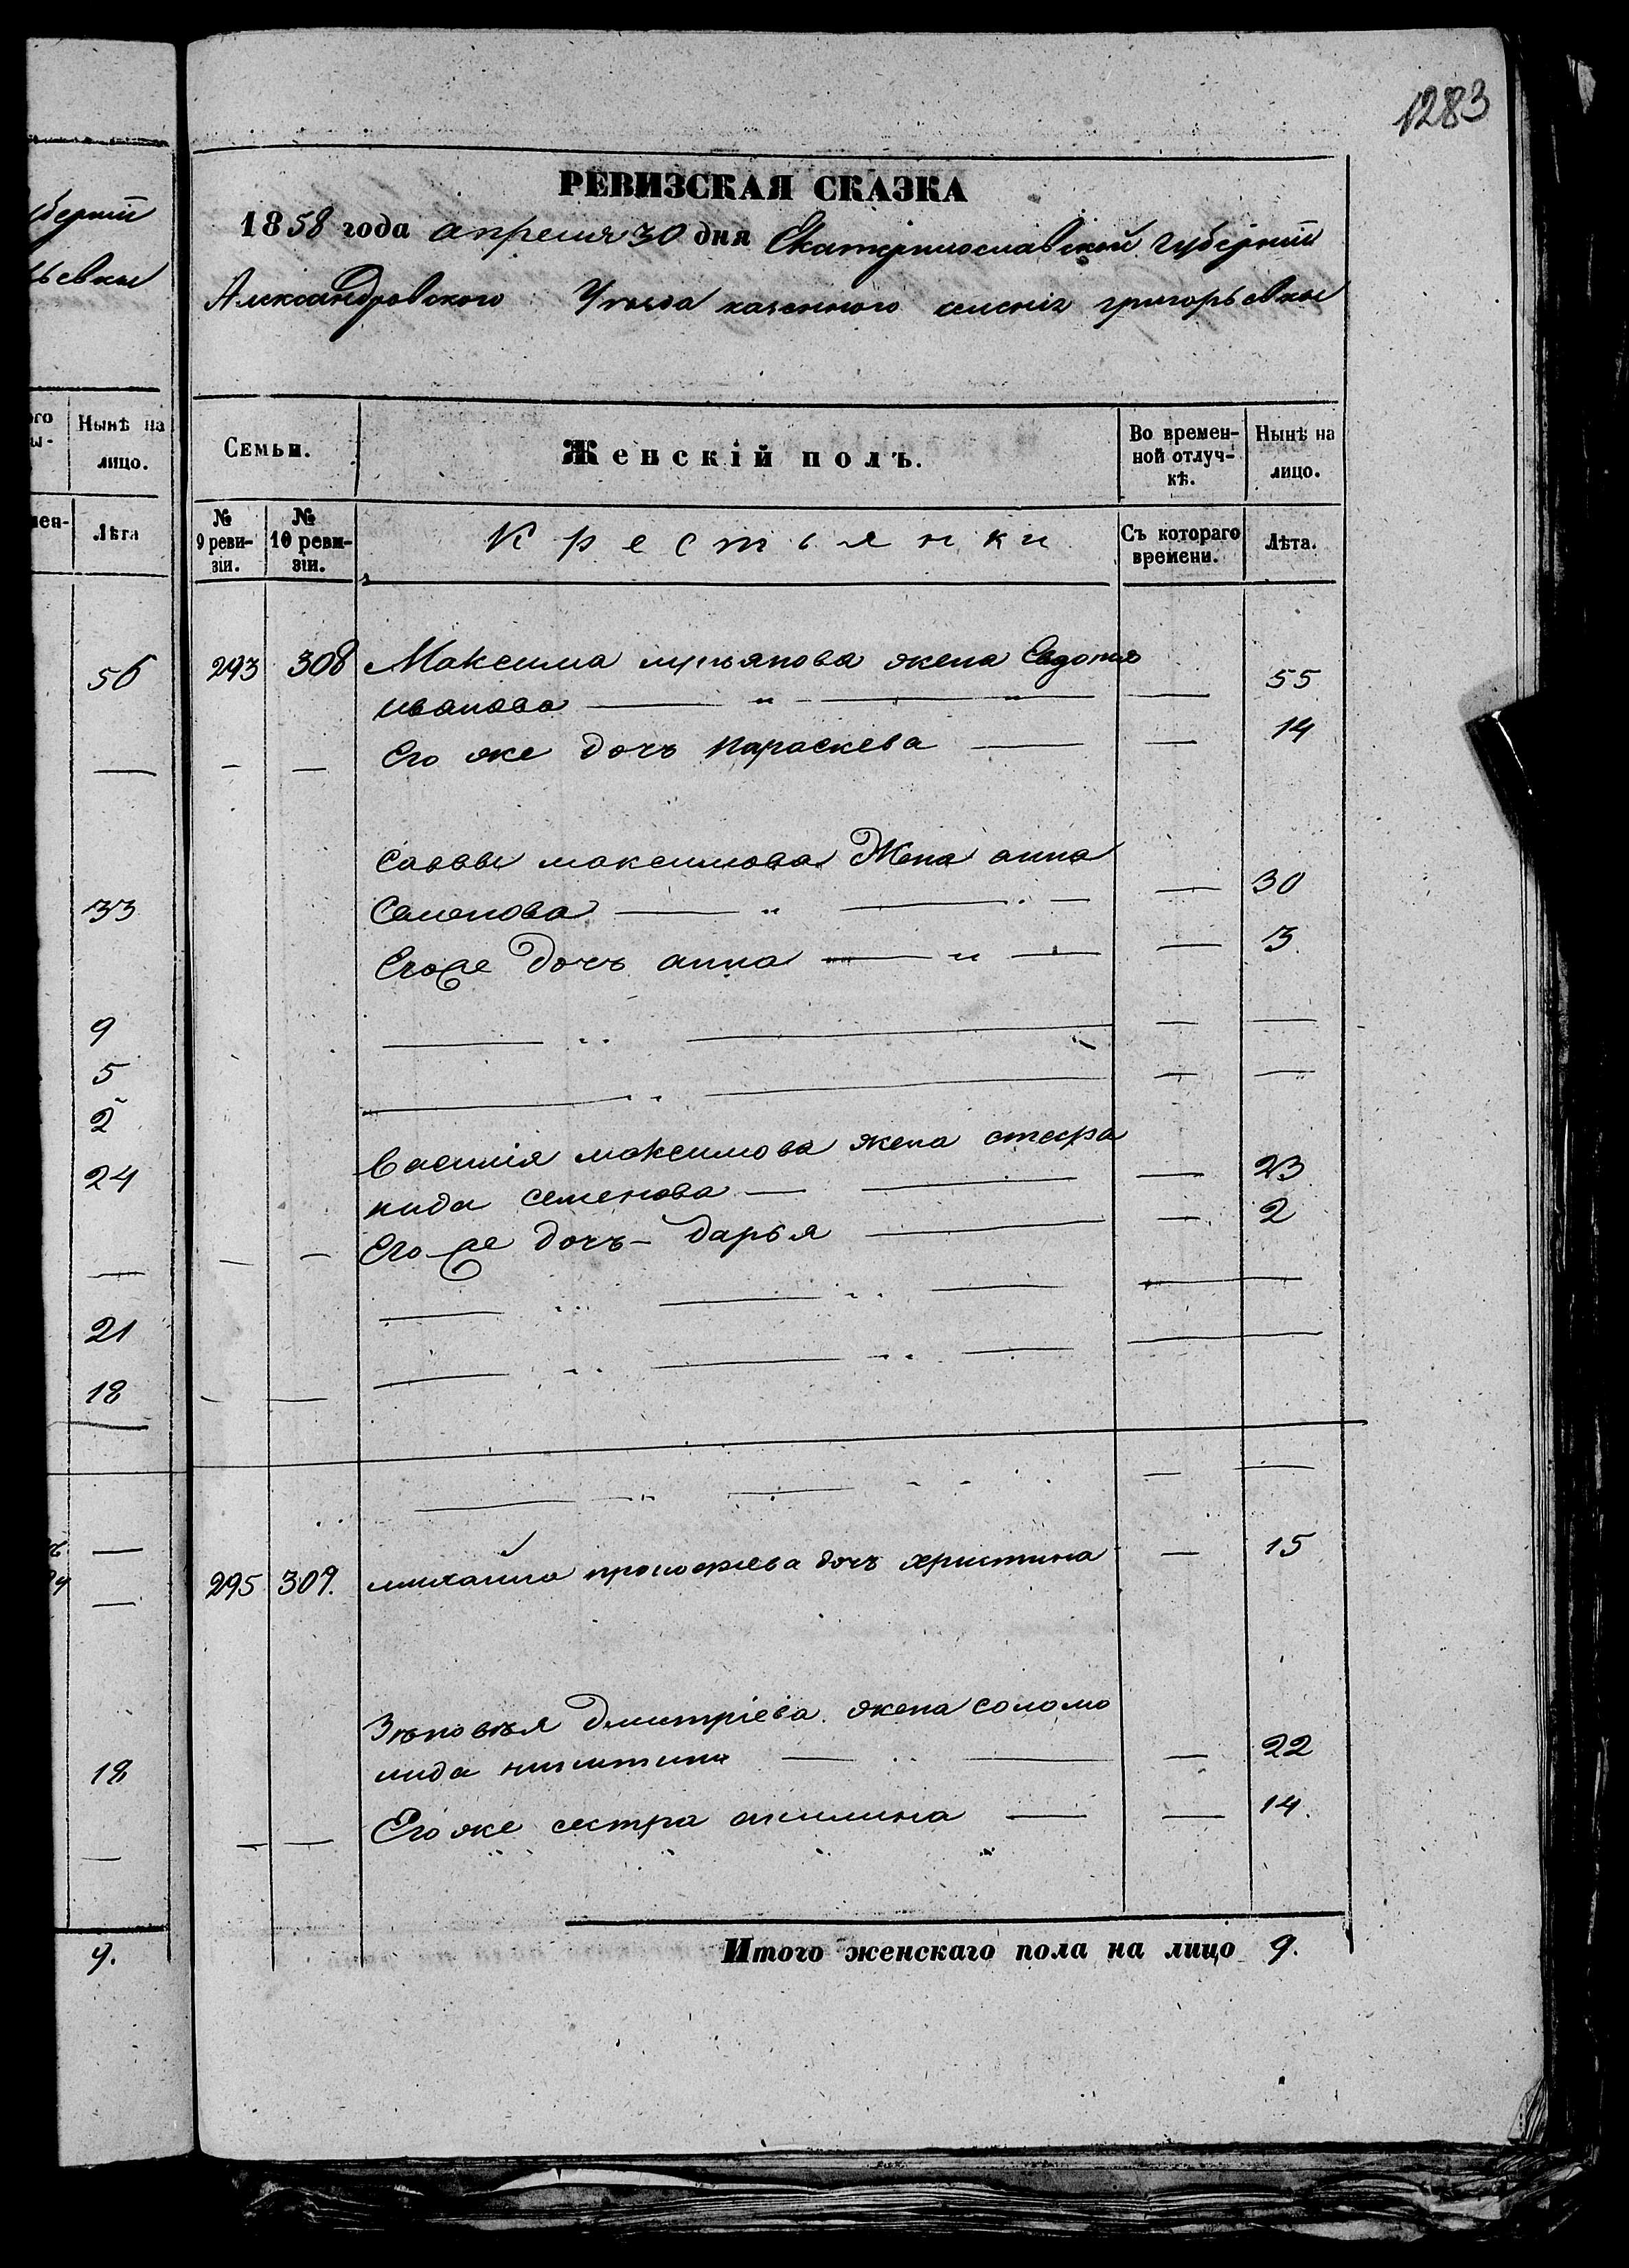 1283
РЕВИЗСКАЯ СКАЗКА
1858 года апреля 30 дня Екатеринославской губернии
Александровского Уезда казенного селения григорьевки
Семьи.
Женскій полъ.
Во времен-
ной отлуч-
кѣ.
Нынѣ на
лицо.
№
9 реви-
зіи.
№
10 реви-
зіи.
Крестьянки
Съ котораго
времени.
Лѣта.
293 308 Максима жена Евдокия
иванова — „ — „ — 55
Его же дочь параскева — — 14
Саввы максимова Жена анна
Семенова — „ — — 30
Егоже дочь анна — „ — — 3
Василія максимова жена стефа
нида семенова — — — 23
Егоже дочь - дарья — — 2
295 309. михайла прокофиева дочь христина — 15
Зѣновѣя дмитріева жена соломо
нида никитина — — — 22
Его же сестра акилина — — 14.
Итого женскаго пола на лицо 9.
берніи
ьевки
ого
ы-
Нынѣ на
лицо.
мен-
Лѣта
56
33
9
5
2
24
21
18
18
9.